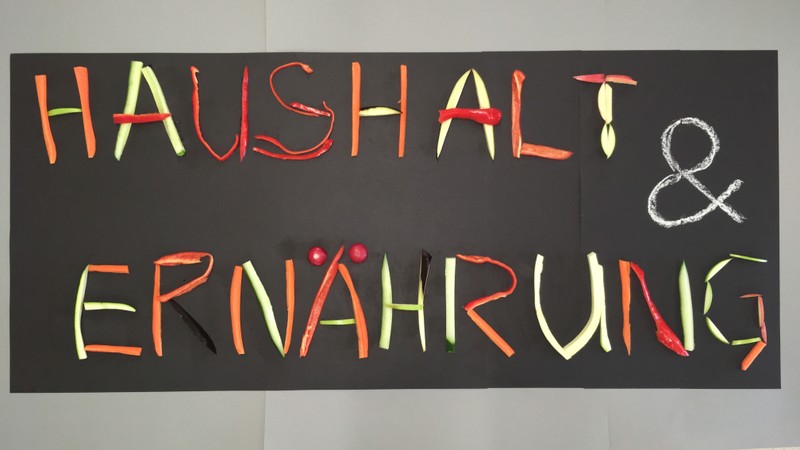 HAUSHALT
&
ERNÄHRUNG